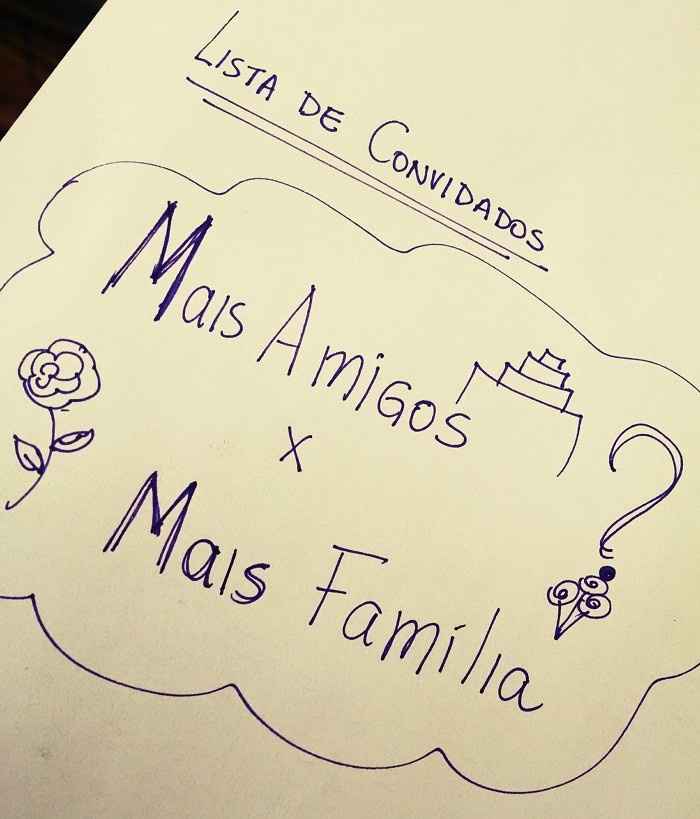 Lista de Convidados
Mais Amigos
x
Mais Família
?